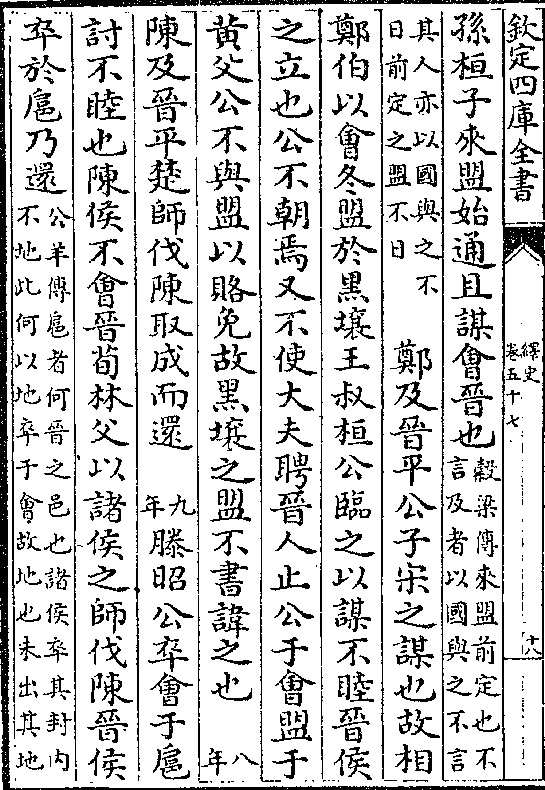 欽定四庫全書
繹史
卷五十七
十八
孫桓子來盟始通且謀會晉也穀梁傳來盟前定也不
言及者以國與之不言
其人亦以國與之不
日前定之盟不日
鄭及晉平公子宋之謀也故相
鄭伯以會冬盟於黑壤王叔桓公臨之以謀不睦晉侯
之立也公不朝焉又不使大夫聘晉人止公于會盟于
黃父公不與盟以賂免故黑壤之盟不書諱之也
八年
陳及晉平楚師伐陳取成而還
九年
滕昭公卒會于扈
討不睦也陳侯不會晉荀林父以諸侯之師伐陳晉侯
卒於扈乃還
公羊傳扈者何晉之邑也諸侯卒其封内
不地此何以地卒于會故地也未出其地